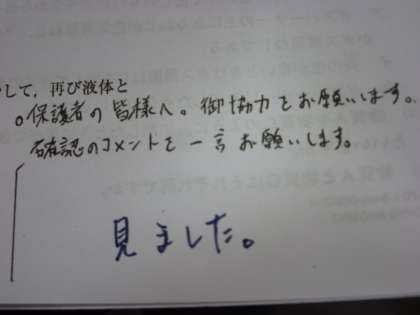 して，再び液体と
○保護者の皆様へ。御協力をお願いします。
確認のコメントを一言お願いします。
見ました。